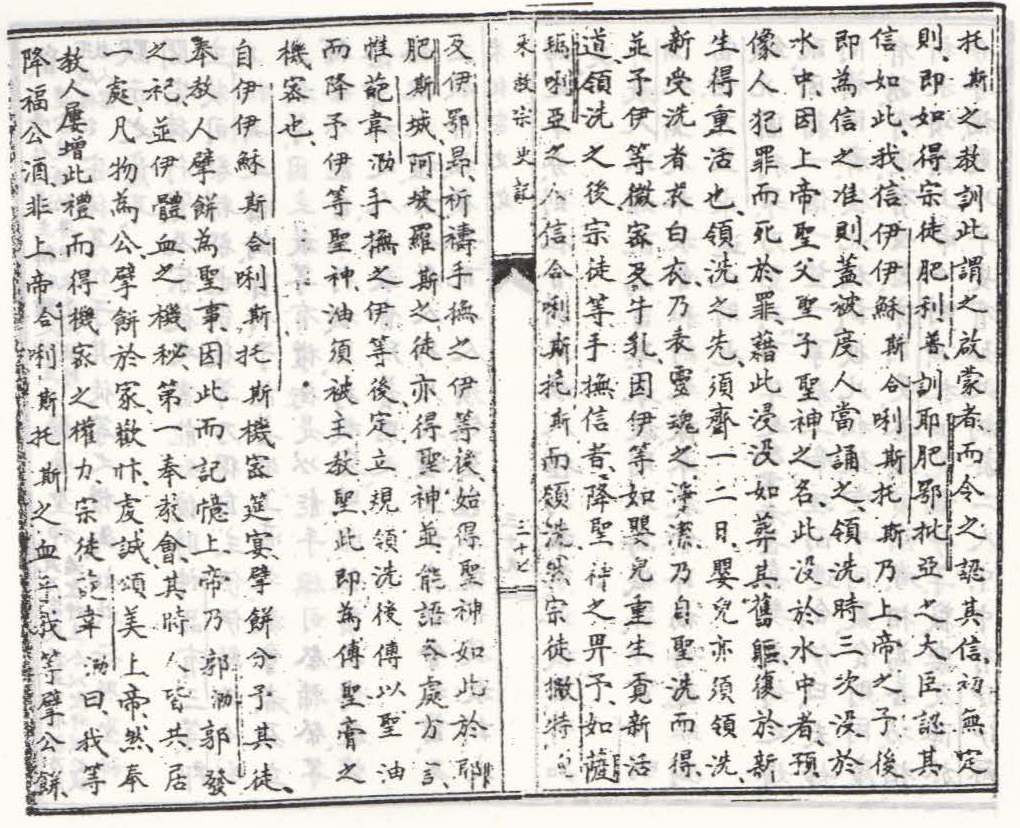 托斯之教訓此謂之啟蒙者、而令之認其信、初無定
則、即如得宗徒肥利普、訓耶肥鄂批亞之大臣認其
信如此、我信伊伊穌斯合唎斯托斯乃上帝之子後
即為信之准則、蓋被度人當誦之、領洗時三次没於
水中、因上帝聖父聖子聖神之名、此没於水中者、預
像人之犯罪而死於罪、藉此浸没如葬其舊軀、復於新
生得重活也、領洗之先、須齋一二日、嬰兒亦須領洗、
新受洗者衣白衣、乃表靈魂之淨潔乃自聖洗而得、
並予伊等微蜜及牛乳、因伊等如嬰兒重生賚新活
道、領洗之後宗徒等手撫信者、降聖神之畀予、如薩
瑪唎亞之人信合唎斯托斯而領洗、然宗徒撒特
東教宗史記
三十七
及伊鄂昂祈禱手撫之、伊等後始得聖神、如此於耶
肥斯城、阿坡羅斯之徒亦得聖神並能語各處方言、
惟葩韋泐手撫之、伊等後定立規領洗後傅以聖油
而降予伊等聖神、油須被主教聖、此即為傅聖膏之
機密也、
自伊伊穌斯合唎斯托斯機密筵宴、擘餅分予其徒、
奉教人擘餅為聖事、因此而記憶上帝乃郭泐郭發
之祀、並伊體血之機秘、第一奉教會其時人皆共居
一處、凡物為公擘餅於家、歡忭虔誠頌美上帝、然奉
教人屢增此禮而得機密之權力、宗徒葩韋泐曰、我等
降福公酒、非上帝合唎斯托斯之血乎我等擘公餅、